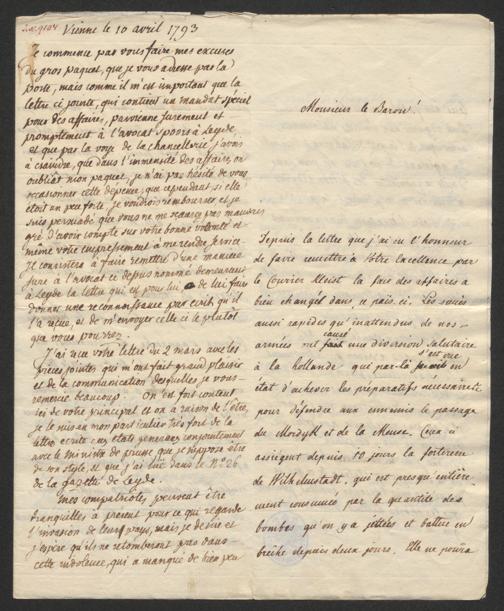 Vienne le 10 avril 1793
Je commence par vous faire mes excuses
du gros paquet, que je vous adresse par la
poste, mais comme il m'est important que la
lettre ci jointe, qui contient un mandat spécial
pour des affaires, parvienne surement et
promptement à l'avocat Spoors à Leyde,
et que par la voye de la chancellerie j'avois
à craindre, que dans l'immensité des affaires, on
oubliat mon paquet, je n'ai pas hésité de vous
occasionner cette depense, que cependant si elle
étoit un peu forte, je voudrois rembourser et je
suis persuadé que vous ne me scaurez pas mauvais
gré d'avoir compté sur votre bonne volonté et
même votre empressement à me rendre service.
Il consistera à faire remettre d'une maniere
sure à l'avocat ci dessus nommé demeurant
à Leyde la lettre qui est pour lui de lui faire
donner une reconnoissance par écrit qu'il
l'a reçue, et de m'envoyer celle ci le plutot
que vous pouvez.
J'ai reçu votre lettre du 2 mars avec les
pieces jointes qui m'ont fait grand plaisir
et de la communication desquelles je vous
remercie beaucoup. On est fort content
ici de votre principal et on a raison de l'être,
je le suis en mon particulier très fort de la
lettre ecrite aux etats generaux conjointement
avec le ministre de prusse que je suppose être
de son style, et que j'ai lue dans le No 26
de la gazette de Leyde.
Mes compatriotes, peuvent être
tranquilles à present pour ce qui regarde
l'invasion de leurs pays, mais je desire et
j'espere qu'ils ne retomberont pas dans
cette indolence, qui a manqué de bien peu
Monsieur le Baron!
Depuis la lettre que j'ai eu l'honneur
de faire remettre à Vôtre Excellence par
le Courier Kleist la face des affaires a
bien changée dans ce païs ci. Les succès
aussi rapides qu'inattendus de nos
armées ont fait causé une diversion salutaire
à la hollande qui par-là s'est vue
en état d'achever les préparatifs necessaires
pour défendre aux ennemis le passage
du Mordyk et de la Meuse. Ceux ci
assiegent depuis 10 jours la forteresse
de Wilhelmstadt, qui est presqu'entière
ment consumée par la quantité des
bombes qu'on y a jettées et battue en
brêche depuis deux jours. Elle ne pourra